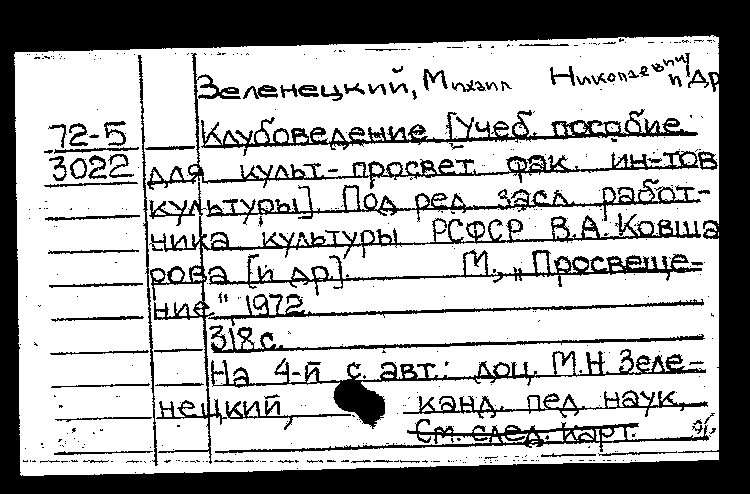 Зеленецкий, Михаил Николаевич и др
72-5 Клубоведение [Учеб. пособие
3022 для культ-просвет. фак. ин-тов
культуры]. Под ред засл. работ-
ника культуры РСФСР В.А. Ковша
рова [и др]. М., „Просвеще-
ние", 1972.
318 с.
На 4-й с. авт.: доц. М.Н. Зеле-
нецкий, канд. пед наук,
См. след. карт.